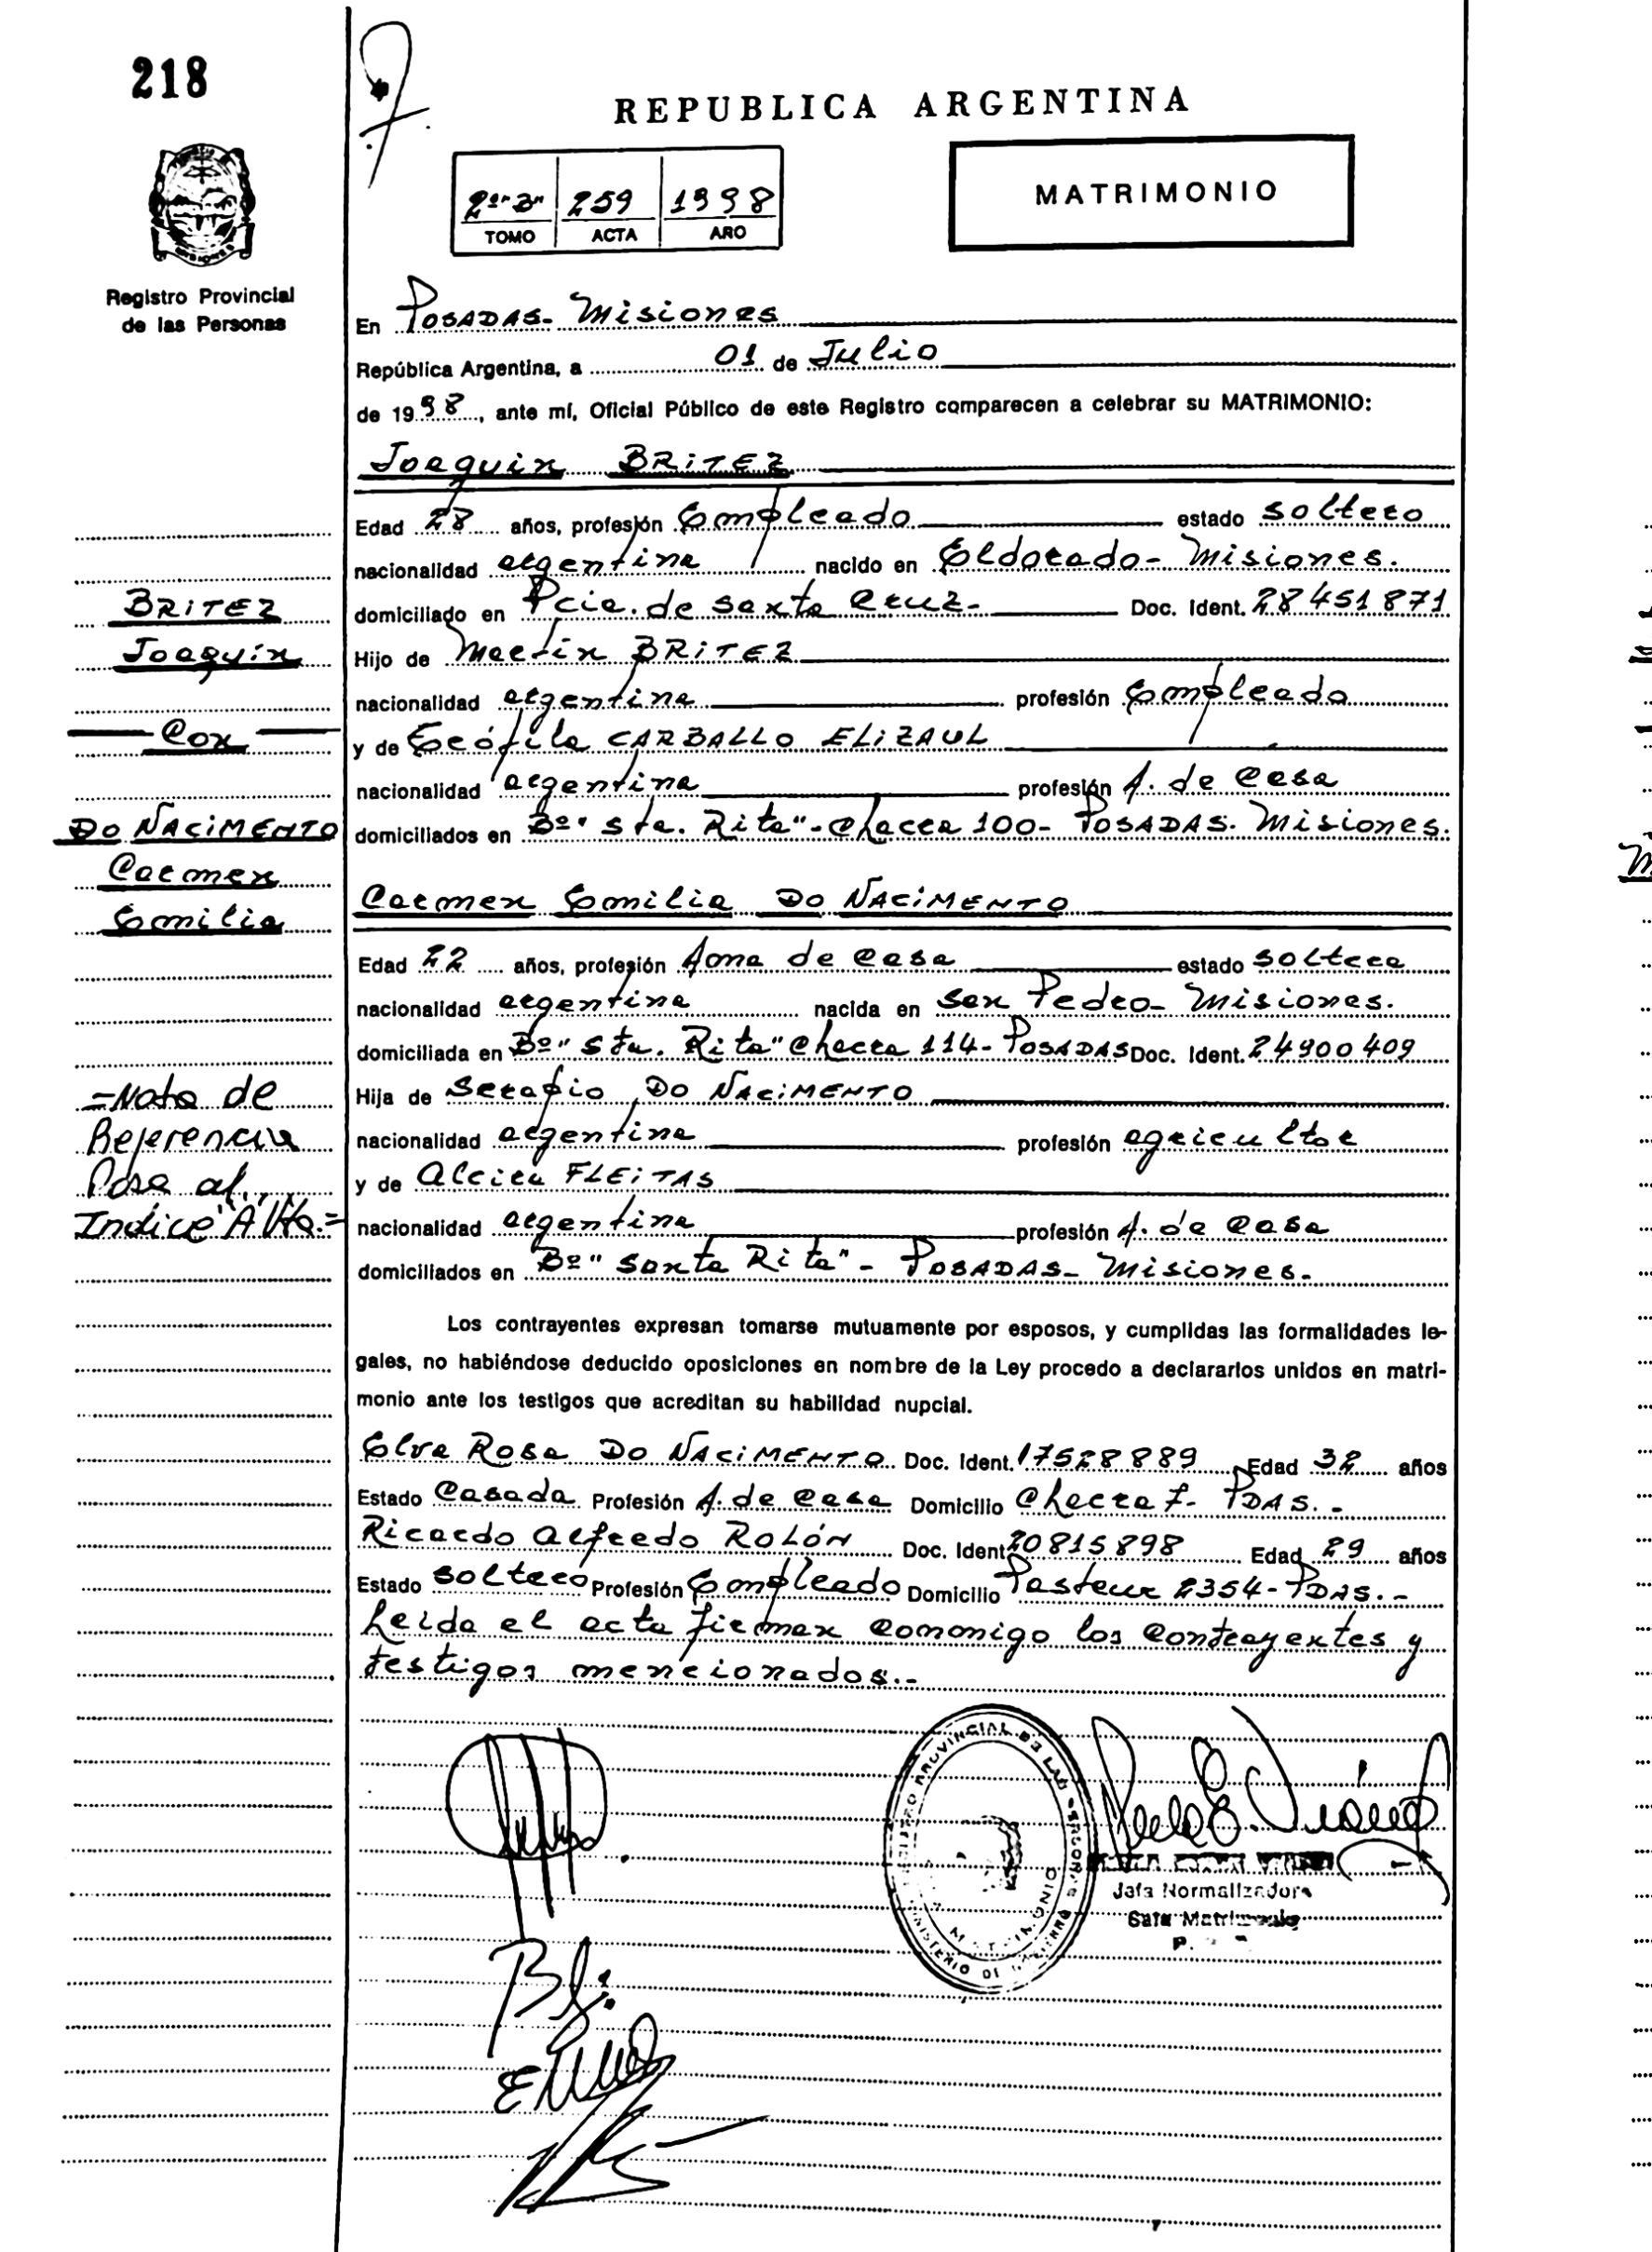 218
REPUBLICA ARGENTINA
2º "B" 259 1998
TOMO ACTA AÑO
MATRIMONIO
Registro Provincial
de las Personas
En POSADAS- Misiones
República Argentina, a 01 de Julio
de 1998, ante mí, Oficial Público de este Registro comparecen a celebrar su MATRIMONIO:
Joaquin BRITEZ
Edad 28 años, profesión Empleado estado soltero
nacionalidad argentina nacido en Eldorado- Misiones.
domiciliado en Pcia. de Santa Cruz- Doc. Ident. 28451871
Hijo de Martin BRITEZ
nacionalidad argentina profesión Empleado
y de Teófila CARBALLO ELIZAUL
nacionalidad argentina profesión A. de Casa
domiciliados en Bº "Sta. Rita"- Chacra 100- POSADAS. Misiones.
Carmen Emilia DO NACIMENTO
Edad 22 años, profesión Ama de Casa estado soltera
nacionalidad argentina nacida en San Pedro- Misiones.
domiciliada en Bº "Sta. Rita" Chacra 114- POSADAS Doc. Ident. 24900409
Hija de Serapio DO NACIMENTO
nacionalidad argentina profesión agricultor
y de Alcira FLEITAS
nacionalidad argentina profesión A. de Casa
domiciliados en Bº "Santa Rita"- POSADAS- Misiones.
Los contrayentes expresan tomarse mutuamente por esposos, y cumplidas las formalidades le-
gales, no habiéndose deducido oposiciones en nombre de la Ley procedo a declararlos unidos en matri-
monio ante los testigos que acreditan su habilidad nupcial.
Elva Rosa DO NACIMENTO Doc. Ident. 17528889 Edad 32 años
Estado Casada Profesión A. de Casa Domicilio Chacra 7- PDAS.-
Ricardo Alfredo ROLÓN Doc. Ident 20815898 Edad 29 años
Estado soltero Profesión Empleado Domicilio Pasteur 2354- PDAS.-
Leida el acta firman comonigo los Contrayentes y
testigos mencionados.-
BRITEZ
Joaquín
Con
DO NACIMENTO
Carmen
Emilia
=Nota de
Referencia
Pasa al
Indice "A" Vto.=
REGISTRO PROVINCIAL DE LAS PERSONAS
MINISTERIO DE GOBIERNO
MATRIMONIO
Jefa Normalizadora
Sala Matrimonio